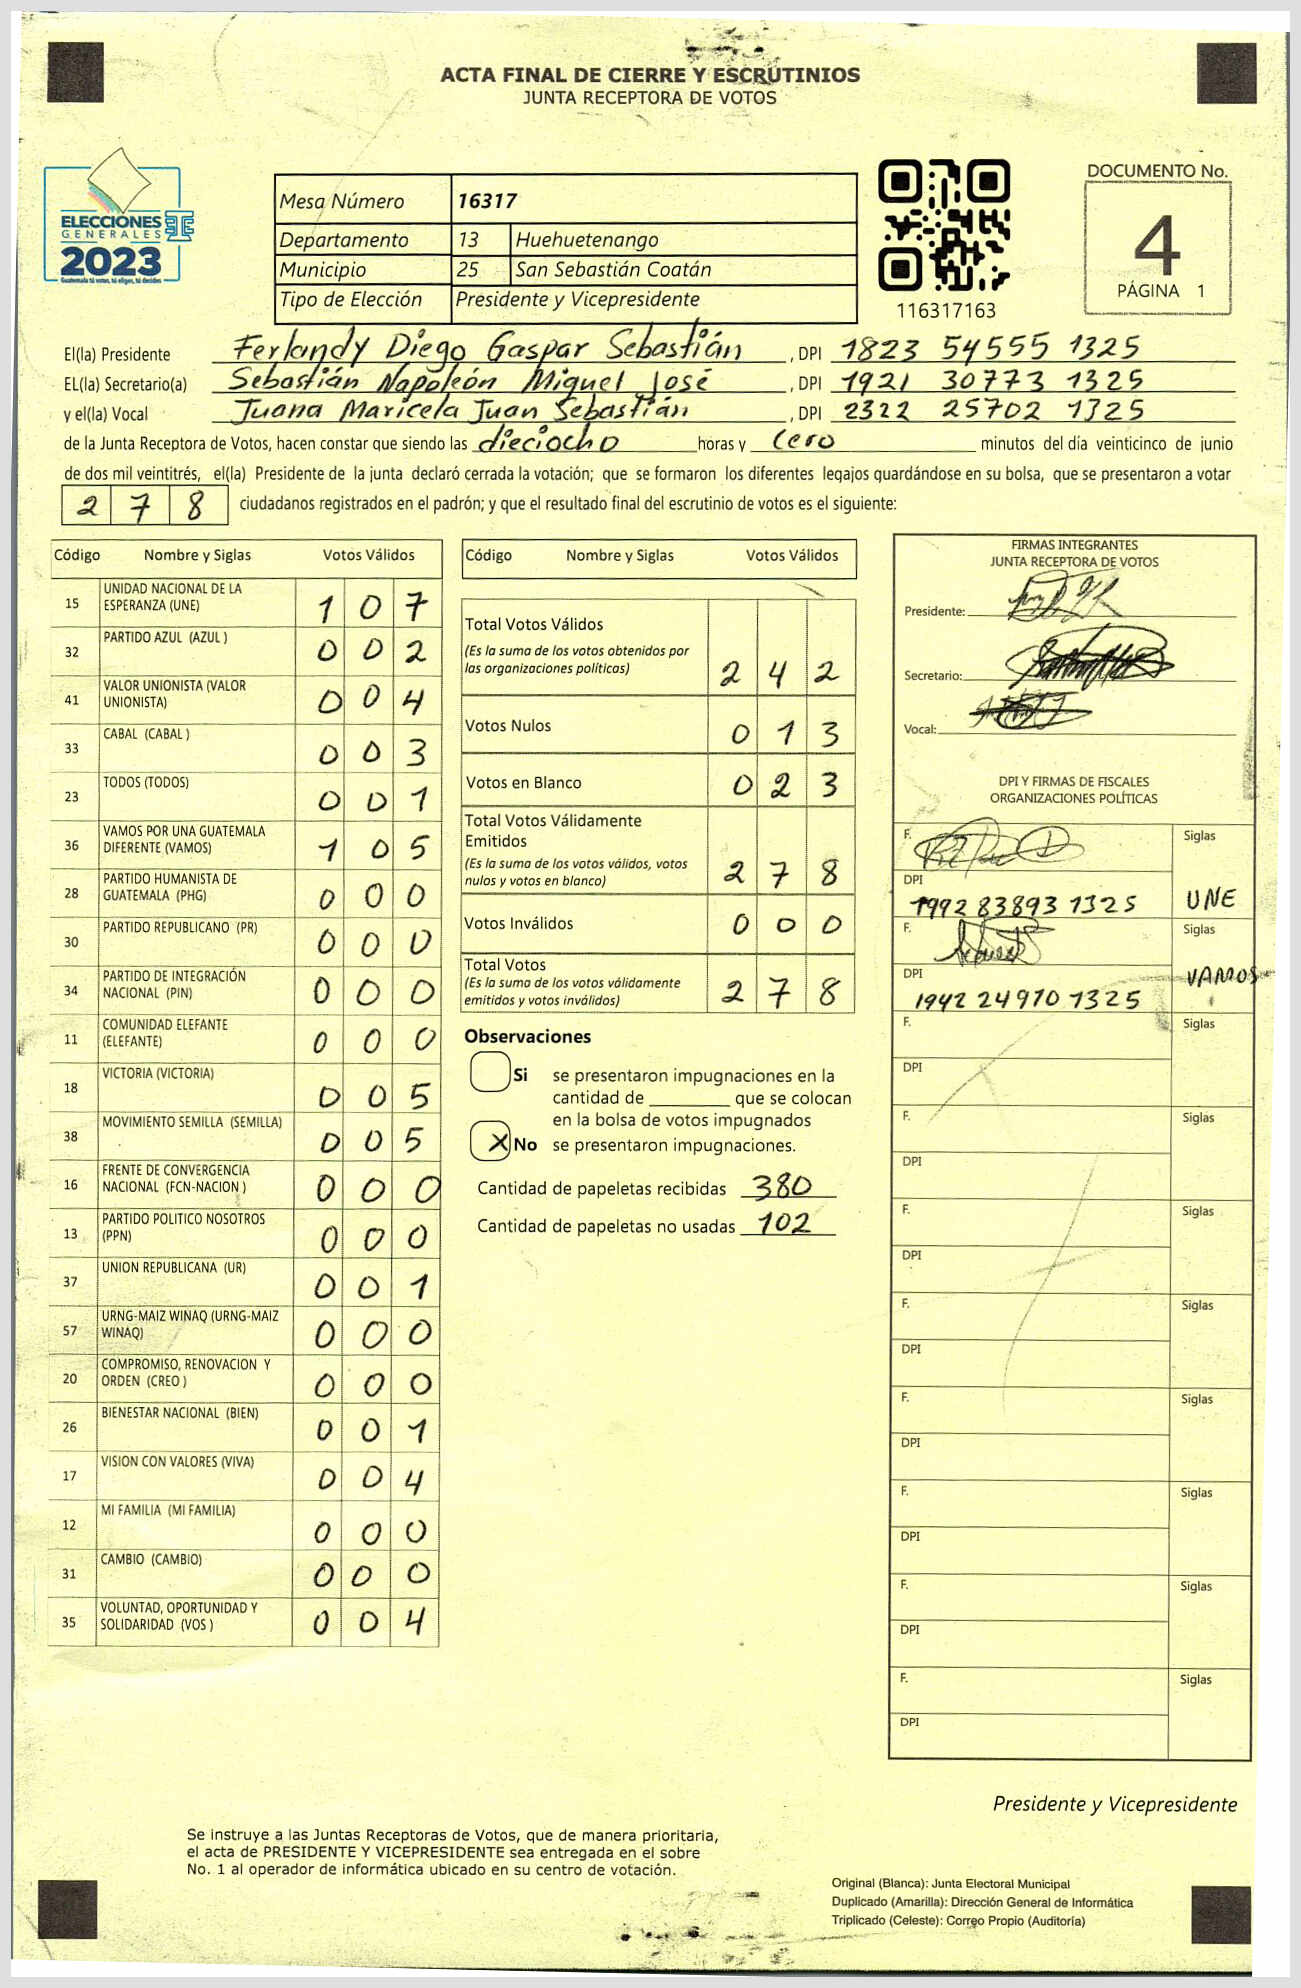 ACTA FINAL DE CIERRE Y ESCRUTINIOS
JUNTA RECEPTORA DE VOTOS
ELECCIONES
GENERALES
2023
Guatemala tú votas, tú eliges, tú decides
Mesa Número 16317
Departamento 13 Huehuetenango
Municipio 25 San Sebastián Coatán
Tipo de Elección Presidente y Vicepresidente
116317163
DOCUMENTO No.
4
PÁGINA 1
El(la) Presidente Ferlandy Diego Gaspar Sebastián, DPI 1823 54555 1325
EL(la) Secretario(a) Sebastián Napoleón Miguel José, DPI 1921 30773 1325
y el(la) Vocal Juana Maricela Juan Sebastián, DPI 2322 25702 1325
de la Junta Receptora de Votos, hacen constar que siendo las dieciocho horas y cero minutos del día veinticinco de junio
de dos mil veintitrés, el(la) Presidente de la junta declaró cerrada la votación; que se formaron los diferentes legajos guardándose en su bolsa, que se presentaron a votar
2 7 8 ciudadanos registrados en el padrón; y que el resultado final del escrutinio de votos es el siguiente:
Código Nombre y Siglas Votos Válidos
15 UNIDAD NACIONAL DE LA
ESPERANZA (UNE) 1 0 7
32 PARTIDO AZUL (AZUL ) 0 0 2
41 VALOR UNIONISTA (VALOR
UNIONISTA) 0 0 4
33 CABAL (CABAL ) 0 0 3
23 TODOS (TODOS) 0 0 1
36 VAMOS POR UNA GUATEMALA
DIFERENTE (VAMOS) 1 0 5
28 PARTIDO HUMANISTA DE
GUATEMALA (PHG) 0 0 0
30 PARTIDO REPUBLICANO (PR) 0 0 0
34 PARTIDO DE INTEGRACIÓN
NACIONAL (PIN) 0 0 0
11 COMUNIDAD ELEFANTE
(ELEFANTE) 0 0 0
18 VICTORIA (VICTORIA) 0 0 5
38 MOVIMIENTO SEMILLA (SEMILLA) 0 0 5
16 FRENTE DE CONVERGENCIA
NACIONAL (FCN-NACION ) 0 0 0
13 PARTIDO POLITICO NOSOTROS
(PPN) 0 0 0
37 UNION REPUBLICANA (UR) 0 0 1
57 URNG-MAIZ WINAQ (URNG-MAIZ
WINAQ) 0 0 0
20 COMPROMISO, RENOVACION Y
ORDEN (CREO ) 0 0 0
26 BIENESTAR NACIONAL (BIEN) 0 0 1
17 VISION CON VALORES (VIVA) 0 0 4
12 MI FAMILIA (MI FAMILIA) 0 0 0
31 CAMBIO (CAMBIO) 0 0 0
35 VOLUNTAD, OPORTUNIDAD Y
SOLIDARIDAD (VOS ) 0 0 4
Código Nombre y Siglas Votos Válidos
Total Votos Válidos
(Es la suma de los votos obtenidos por
las organizaciones políticas) 2 4 2
Votos Nulos 0 1 3
Votos en Blanco 0 2 3
Total Votos Válidamente
Emitidos
(Es la suma de los votos válidos, votos
nulos y votos en blanco) 2 7 8
Votos Inválidos 0 0 0
Total Votos
(Es la suma de los votos válidamente
emitidos y votos inválidos) 2 7 8
Observaciones
Si se presentaron impugnaciones en la
cantidad de ________ que se colocan
en la bolsa de votos impugnados
X No se presentaron impugnaciones.
Cantidad de papeletas recibidas 380
Cantidad de papeletas no usadas 102
FIRMAS INTEGRANTES
JUNTA RECEPTORA DE VOTOS
Presidente:
Secretario:
Vocal:
DPI Y FIRMAS DE FISCALES
ORGANIZACIONES POLÍTICAS
F. Siglas
DPI
1992 83893 1325 UNE
F. Siglas
DPI VAMOS
1942 24970 1325
F. Siglas
DPI
F. Siglas
DPI
F. Siglas
DPI
F. Siglas
DPI
F. Siglas
DPI
F. Siglas
DPI
F. Siglas
DPI
F. Siglas
DPI
Presidente y Vicepresidente
Se instruye a las Juntas Receptoras de Votos, que de manera prioritaria,
el acta de PRESIDENTE Y VICEPRESIDENTE sea entregada en el sobre
No. 1 al operador de informática ubicado en su centro de votación.
Original (Blanca): Junta Electoral Municipal
Duplicado (Amarilla): Dirección General de Informática
Triplicado (Celeste): Correo Propio (Auditoría)